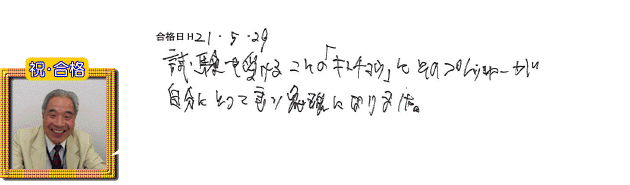 合格日 H21・5・29
祝・合格
試験を受けることの「キンチョウ」とそのプレッシャーが
自分にとって良い経験になりました。